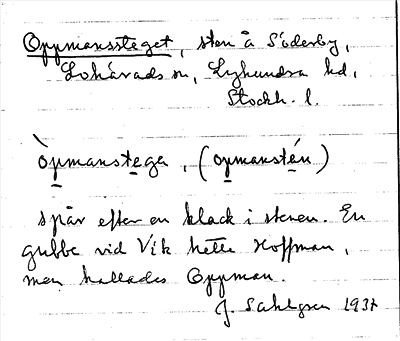 Oppmanssteget, sten å Söderby,
Lohärads sn, Lyhundra hd,
Stockh. l.
òpmanstega, (opmanstén)
spår efter en klack i stenen. En
gubbe vid Vik hette Hoffman,
men kallades Oppman.
J. Sahlgren 1937